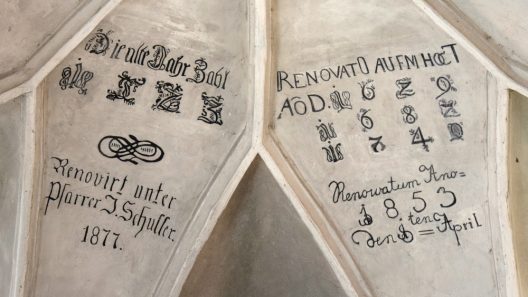 Die alte Jahr Zahl
1 5 2 2
Renovirt unter
Pfarrer J. Schuller.
1877.
RENOVATŪ AUFM HOCT
AŌD. 1 6 2 9
1 6 8 2
1 7 4 9
Renowatum Ano=
1853
den 8 tenc = April